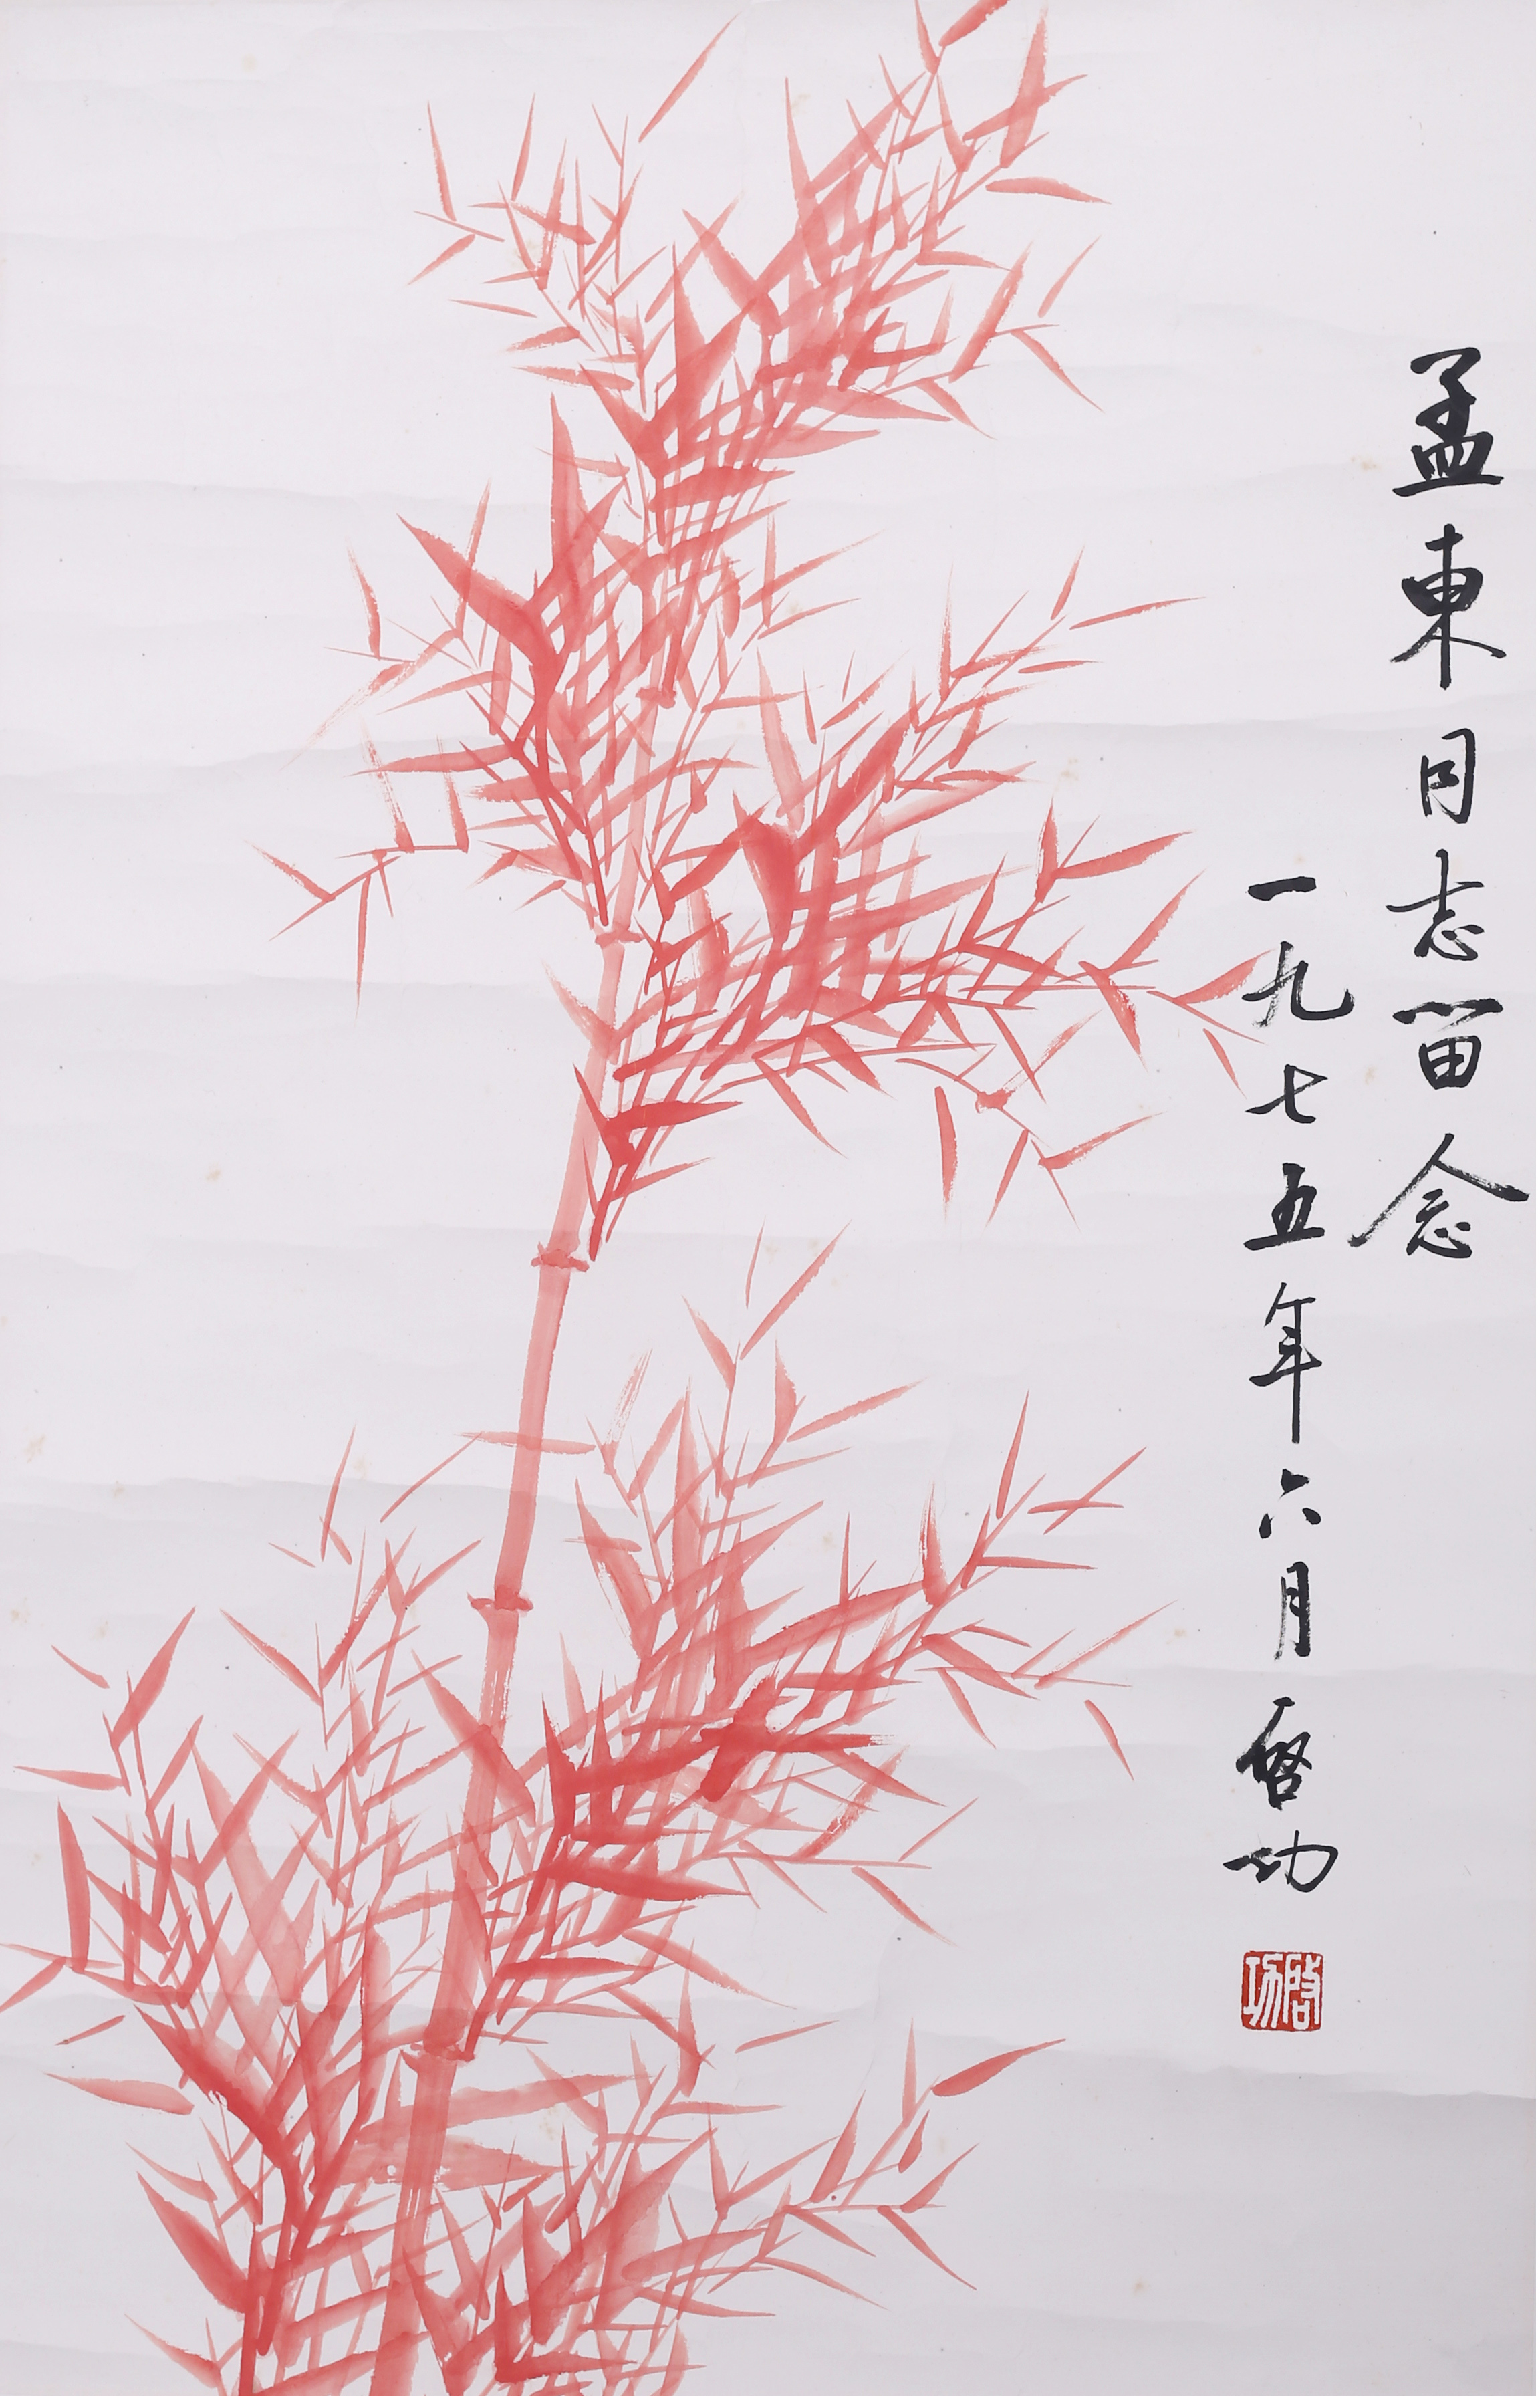 孟東同志留念
一九七五年六月 啓功
啓功